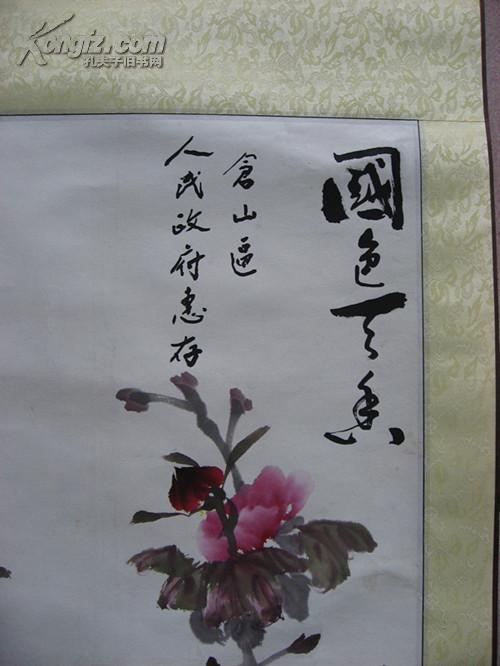 Kongfz.com
孔夫子旧书网
國色天香
倉山區
人民政府惠存